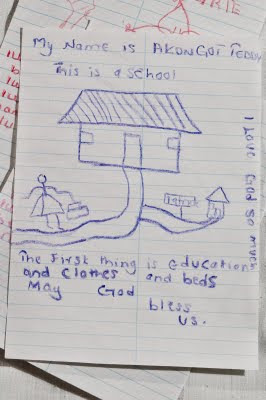 My Name is TEDDY
This is a school
I love God so much
The First thing is educations
and clothes and beds
May God
bless
us.